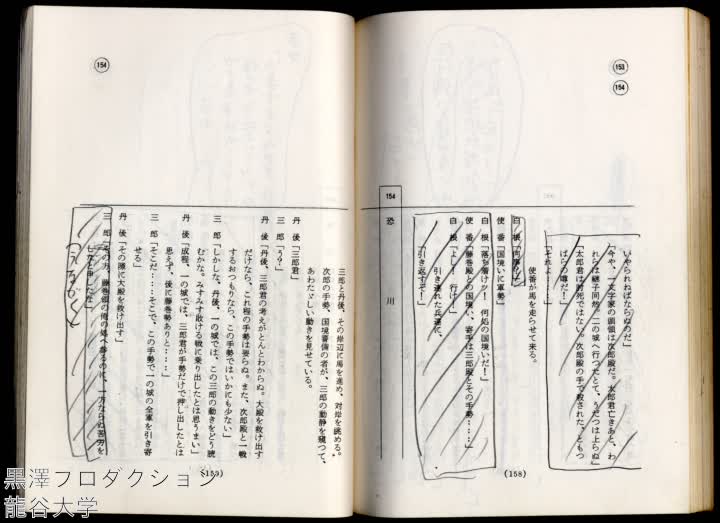 153
154
いかられねばならぬのだ」
「今や、一文字家の頭領は次郎殿だ。太郎君亡きあと、わ
れらは継子同然。二の城へ行ったとて、うだつは上らぬ」
「太郎君は討死ではない。次郎殿の手で殺された、ともっ
ぱらの噂だ！」
「それよ……」
使番が馬を走らせて来る。
白　根「何事だ」
使　番「国境いに軍勢」
白　根「落ち着けッ！　何処の国境いだ！」
使　番「藤巻殿との国境い、寄手は三郎殿とその手勢……」
白　根「よし！　行け！」
引き連れた兵達に、
「引き返すぞ！」
154
恐　川
(158)
154
三郎と丹後、その岸辺に馬を進め、対岸を眺める。
次郎の手勢、国境警備の者が、三郎の動静を窺って、
あわただしい動きを見せている。
丹　後「三郎君」
三　郎「う？」
丹　後「丹後、三郎君の考えがとんとわからぬ。大殿を救け出す
だけなら、これ程の手勢は要らぬ。また、次郎殿と一戦
するおつもりなら、この手勢ではいかにも少ない」
三　郎「しかしな、丹後、一の城では、この三郎の動きをどう読
むかな。みすみす敗ける戦に乗り出したとは思うまい」
丹　後「成程、一の城では、三郎君が手勢だけで押し出したとは
思えず、後に藤巻勢ありと……」
三　郎「そこだ……そこで、この手勢で一の城の全軍を引き寄
せる」
丹　後「その隙に大殿を救け出す」
三　郎「その方、藤巻領の俺の処へ参るのに、一方ならぬ苦労を
したと申したな」
(159)
黒澤プロダクション
龍谷大学